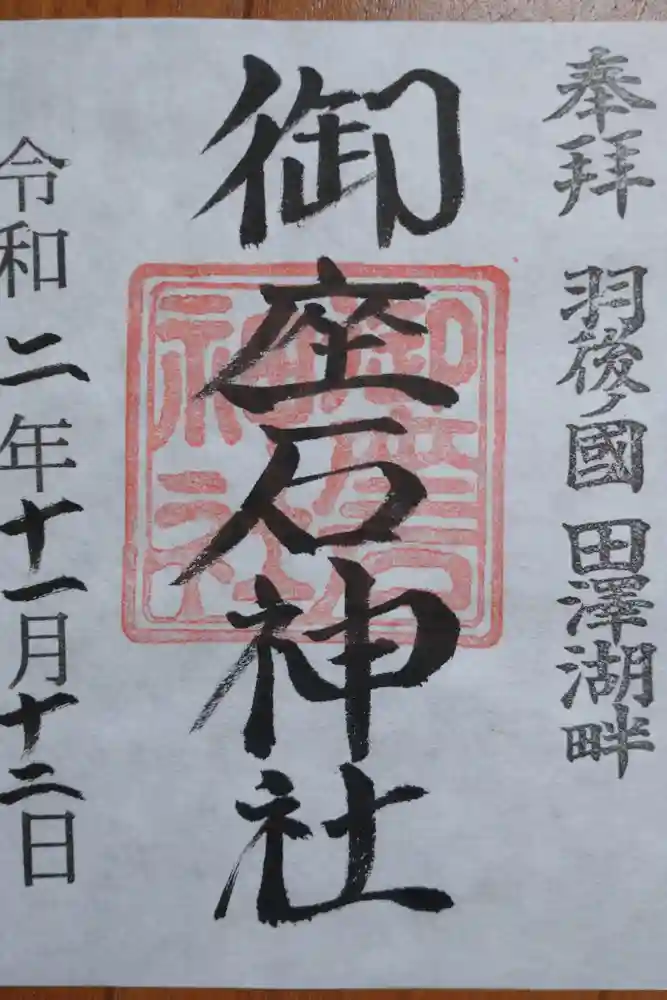 奉拝 羽後ノ國 田澤湖畔
御座石神社
御座石
神社
令和二年十一月十二日